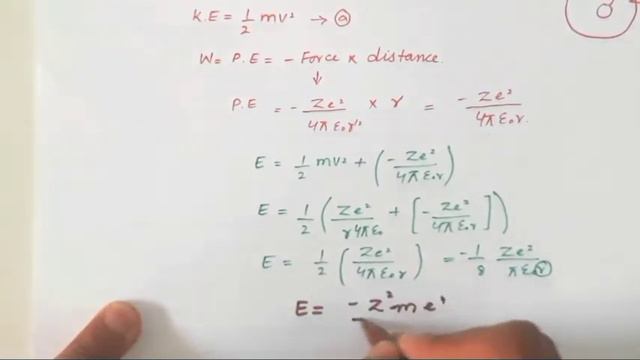 K.E = 1/2 mv² → ⓐ
W = P.E = - Force × distance.
↓
P.E = - Ze²/4πε₀r² × r = - Ze²/4πε₀r.
E = 1/2 mv² + (- Ze²/4πε₀r)
E = 1/2 (Ze²/r4πε₀ + [- Ze²/4πε₀r])
E = 1/2 (Ze²/4πε₀r) = -1/8 Ze²/πε₀r
E = - Z²me